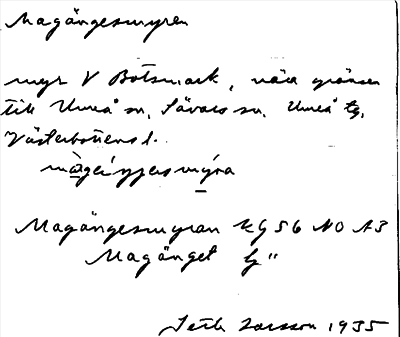 Magängesmyren
myr V Botsmark, nära gränsen
till Umeå sn, Sävars sn, Umeå tg,
Västerbottens l.
Magängesmyran kg 56 NO A3
Magänget lg"
Seth Larsson 1935